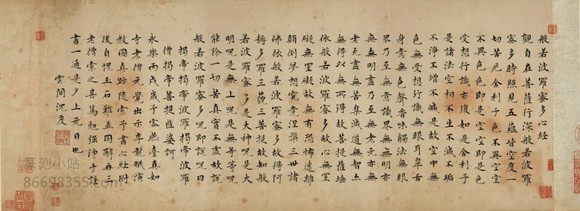 般若波羅蜜多心經
觀自在菩薩行深般若波羅
蜜多時照見五蘊皆空度一
切苦厄舍利子色不異空空
不異色色即是空空即是色
受想行識亦復如是舍利子
是諸法空相不生不滅不垢
不淨不增不減是故空中無
色無受想行識無眼耳鼻舌
身意無色聲香味觸法無眼
界乃至無意識界無無明亦
無無明盡乃至無老死亦無
老死盡無苦集滅道無智亦
無得以無所得故菩提薩埵
依般若波羅蜜多故心無罣
礙無罣礙故無有恐怖遠離
顛倒夢想究竟涅槃三世諸
佛依般若波羅蜜多故得阿
耨多羅三藐三菩提故知般
若波羅蜜多是大神呪是大
明呪是無上呪是無等等呪
能除一切苦真實不虛故說
般若波羅蜜多呪即說呪曰
揭帝揭帝般羅揭帝般羅
僧揭帝菩提薩婆訶
永樂丙戌歲予客燕臺真如
寺老僧元覺出示
書一通是夕上元日也
雲間沈度
86698355.com